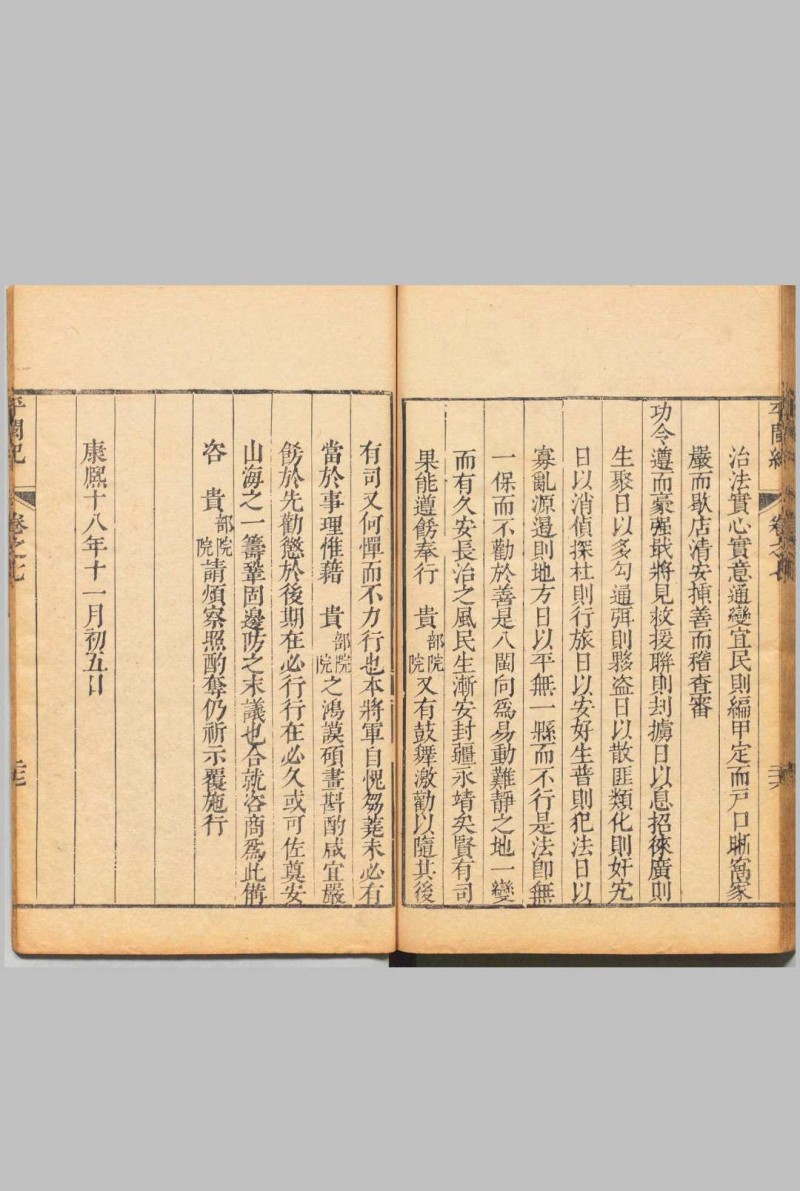 治法實心實意通變宜民則編甲定而戸口晰窩家
嚴而歇店清安揷善而稽查審
功令遵而豪強戢將見救援聯則刦擄日以息招徠廣則
生聚日以多勾通弭則夥盗日以散匪類化則奸宄
日以消偵探杜則行旅日以安好生普則犯法日以
寡亂源遏則地方日以平無一縣而不行是法卽無
一保而不勸於善是八閩向爲易動難靜之地一變
而有久安長治之風民生漸安封疆永靖矣賢有司
果能遵飭奉行　貴部院院又有鼓舞激勸以隨其後
有司又何憚而不力行也本將軍自愧芻蕘未必有
當於事理惟藉　貴部院院之鴻謨碩畫斟酌咸宜嚴
飭於先勸懲於後期在必行行在必久或可佐奠安
山海之一籌鞏固邊防之末議也合就咨商爲此備
咨　貴部院院請煩察照酌奪仍祈示覆施行
康熙十八年十一月初五日
平閩紀　卷之七　二十七